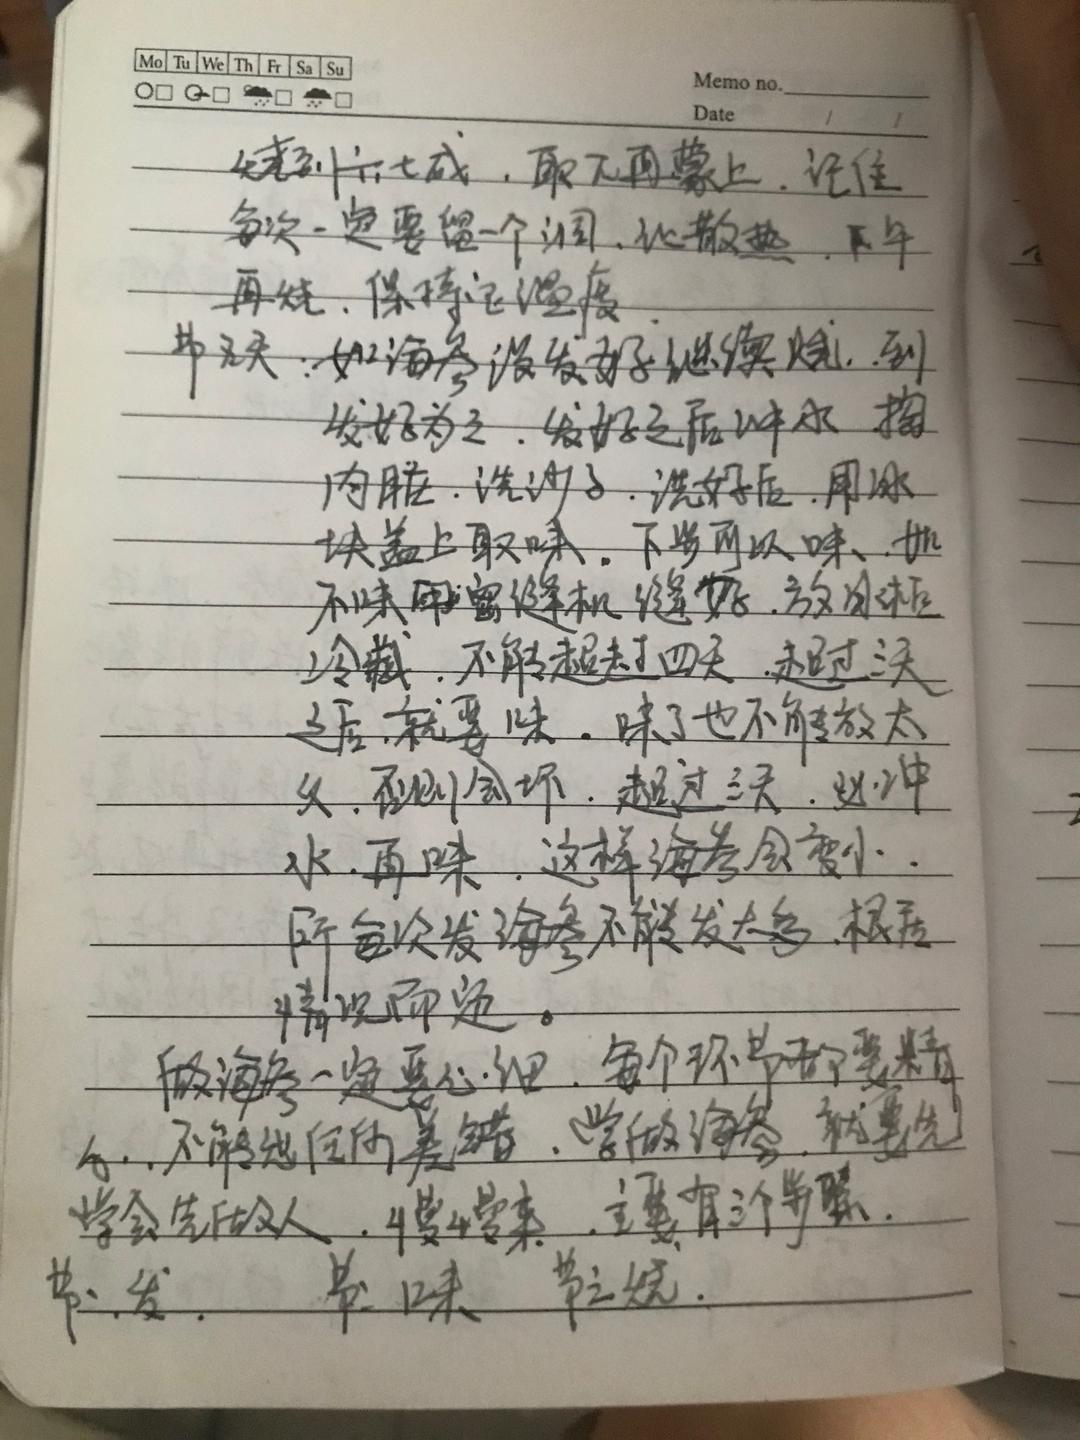 Mo Tu We Th Fr Sa Su
Memo no.
Date / /
烧到六七成．取下再蒙上．记住
每次一定要留一个洞．让散热．下午
再烧．保持它温度．
节五天：如海参没发好继续烧．到
发好为之．发好之后冲水 掏
内脏．洗沙子．洗好后．用冰
块盖上取味．下步可以味、如
不味用 缝机缝好．放冰柜
冷藏．不能超过四天．超过三天
之后．就要味．味了也不能放太
久．否则会坏．超过三天．必冲
水．再味．这样海参会变小．
所每次发海参不能发太多．根居
情况而定。
做海参一定要心细．每个环节都要精
心．．不能出任何差错．学做海参．就要先
学会先做人．慢慢来．主要有三个步骤．
节一．发． 节二 味 节三烧．